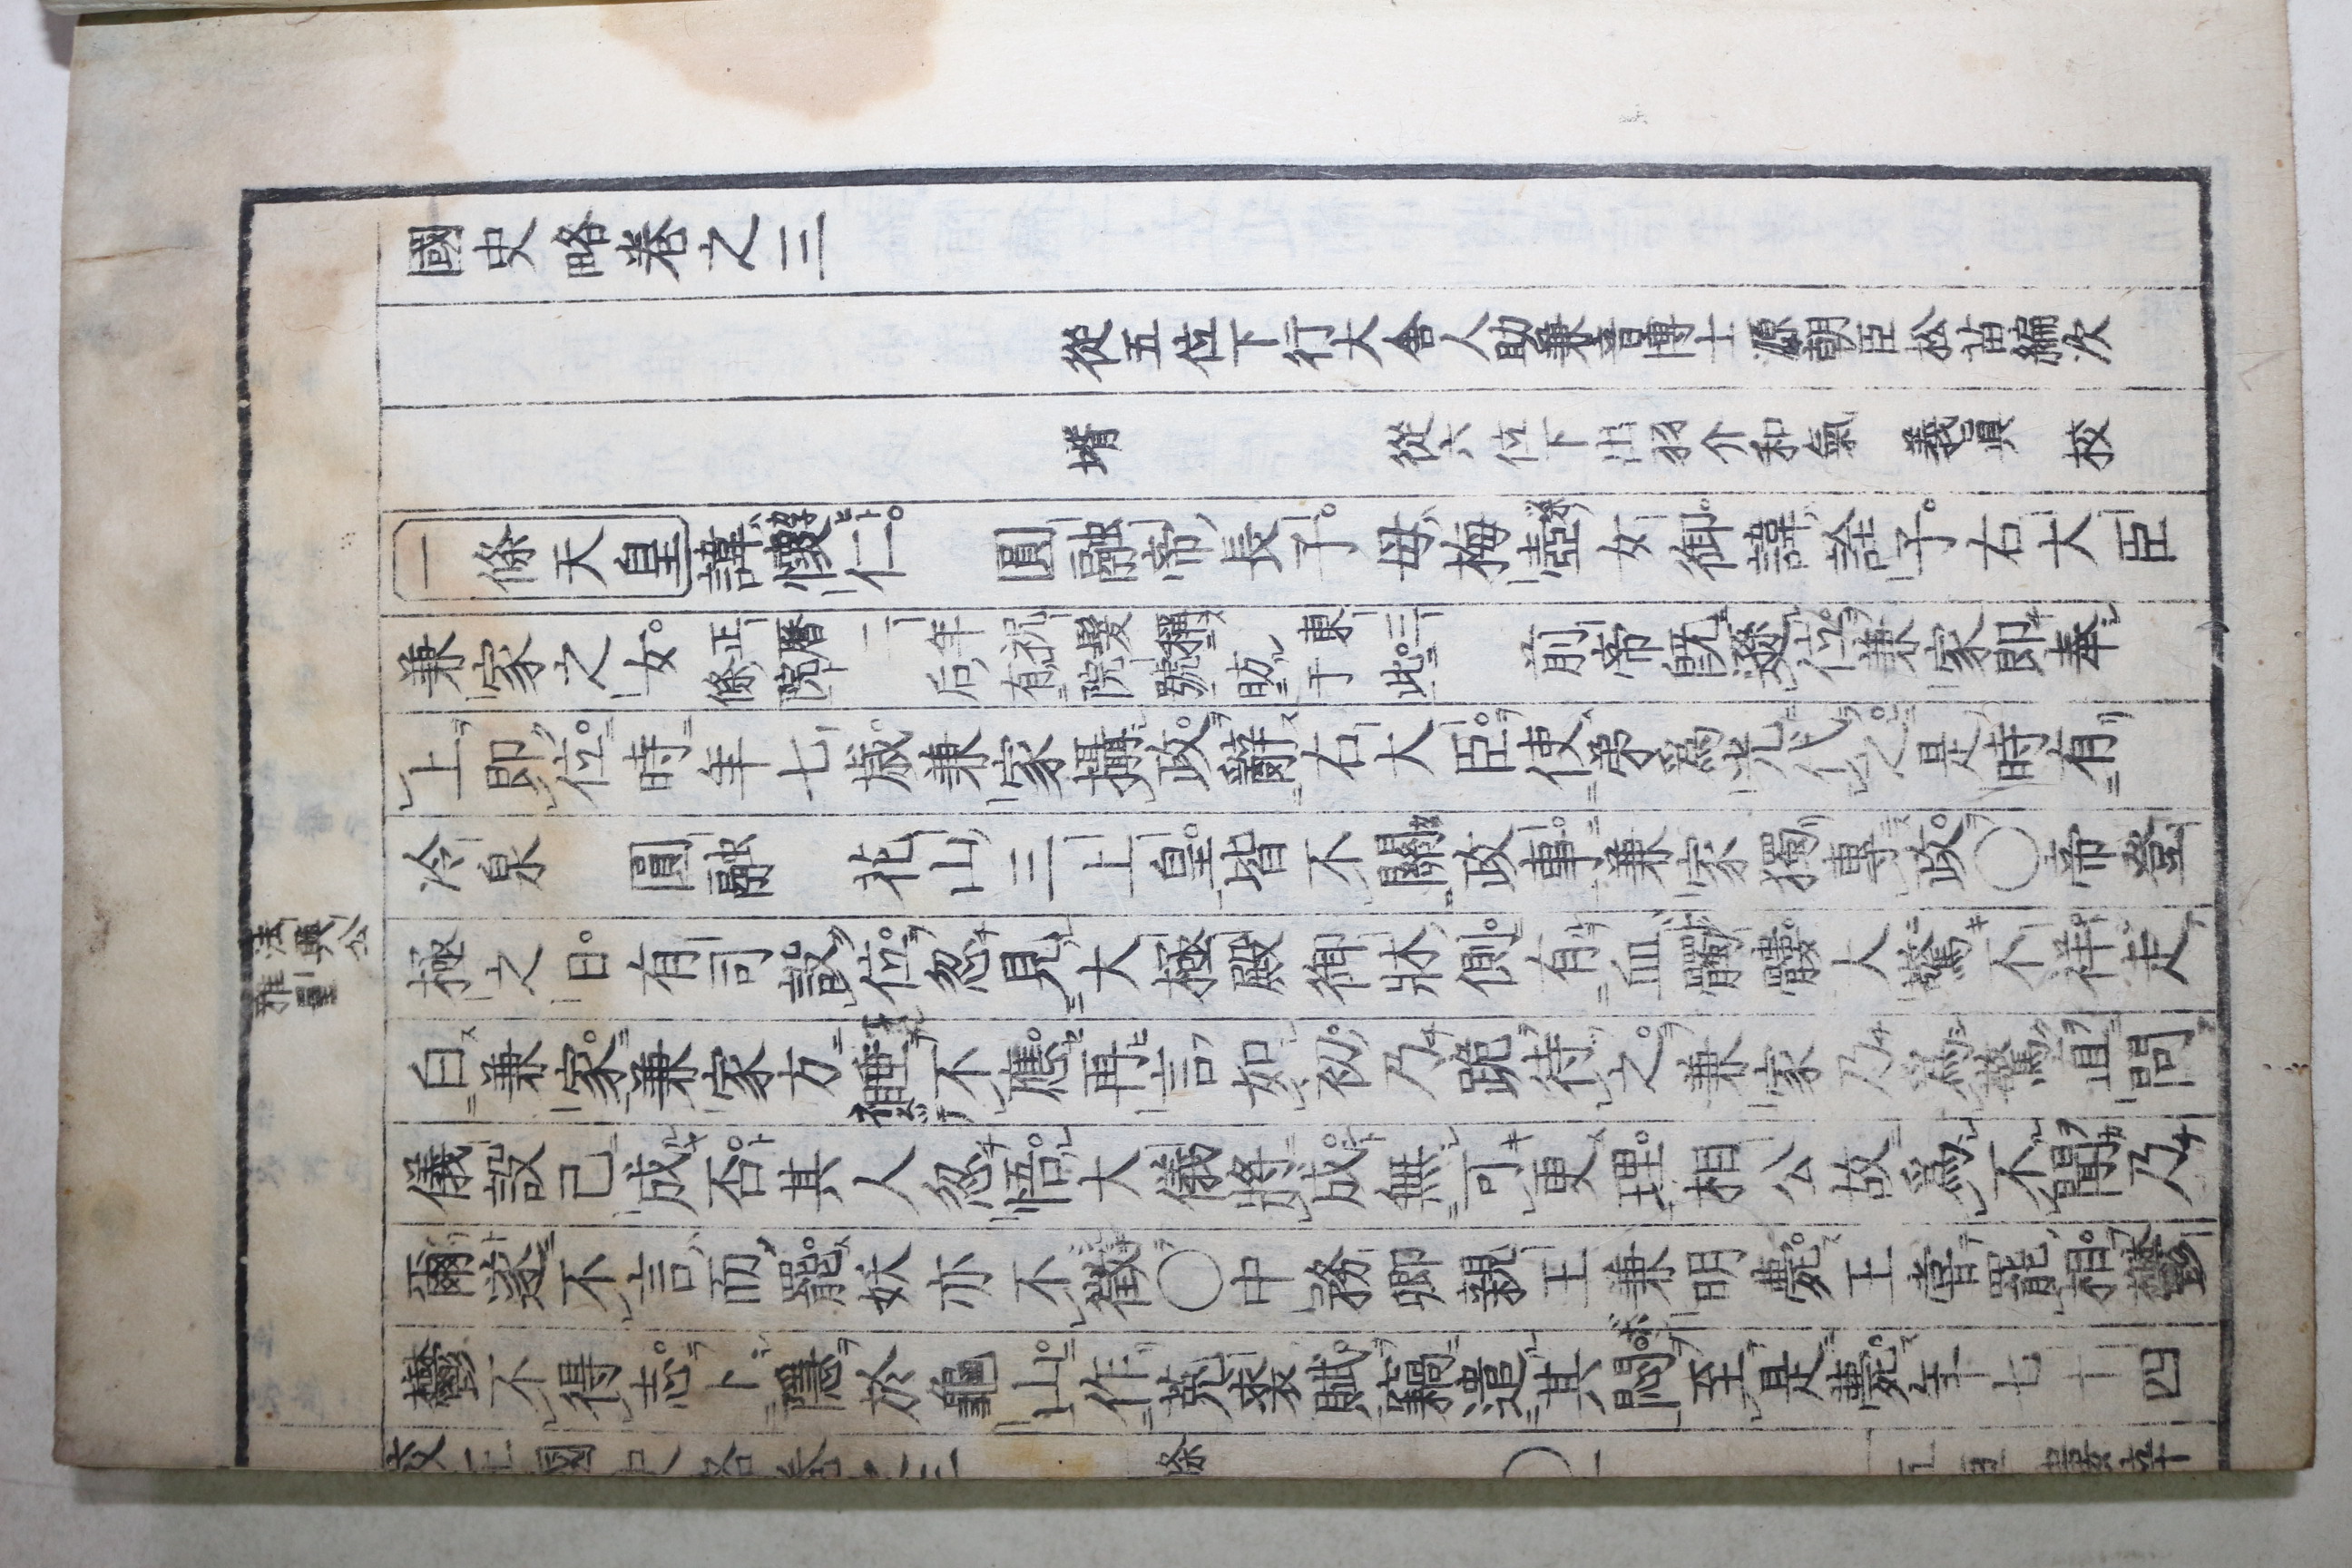 國史略卷之三
從五位下行大舍人助兼音博士源朝臣松苗編次
壻 從六位下出羽介和氣 義具 校
一條天皇 諱懷仁。 圓融帝長子。母梅壺女御。諱詮子。右大臣
兼家之女。正曆二年祝髮稱東三條院后有院號昉于此。 前帝既遜位。兼家即奉
上即位。時年七歲。兼家攝政。辭右大臣。使爲光代之。是時有
冷泉 圓融 花山三上皇。皆不關政事。兼家獨專政。○帝登
極之日。有司設位。忽見大極殿御牀側。有血髑髏。人驚不祥。走
白兼家。兼家方睡不應。再言如初。乃跪待之。兼家乃爲驚直問
儀設已成否。其人忽悟。大儀將成。無可更理。相公故爲不聞。乃
爾遂不言而罷。妖亦不徵。○中務卿親王兼明薨。王嘗罷相。怏
鬱不得志。卜隱於龜山。作菟裘賦。寫遣其悶。至是薨。年七十四
法興公
雅量
校正國史略卷之三 一條 ○一 五車樓梓